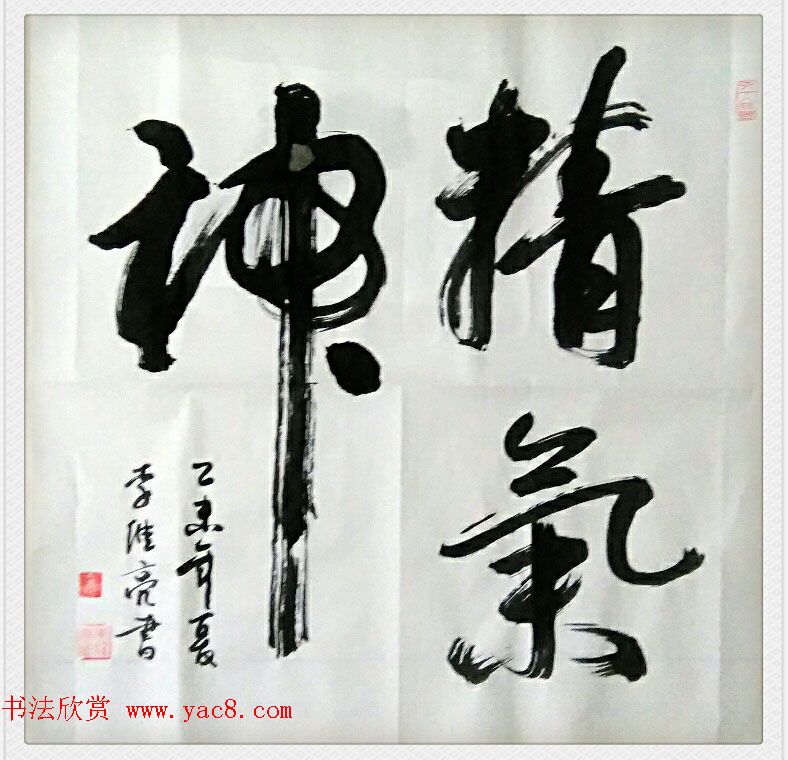 精氣
神
乙未年夏
李維亮書
书法欣赏 www.yac8.com